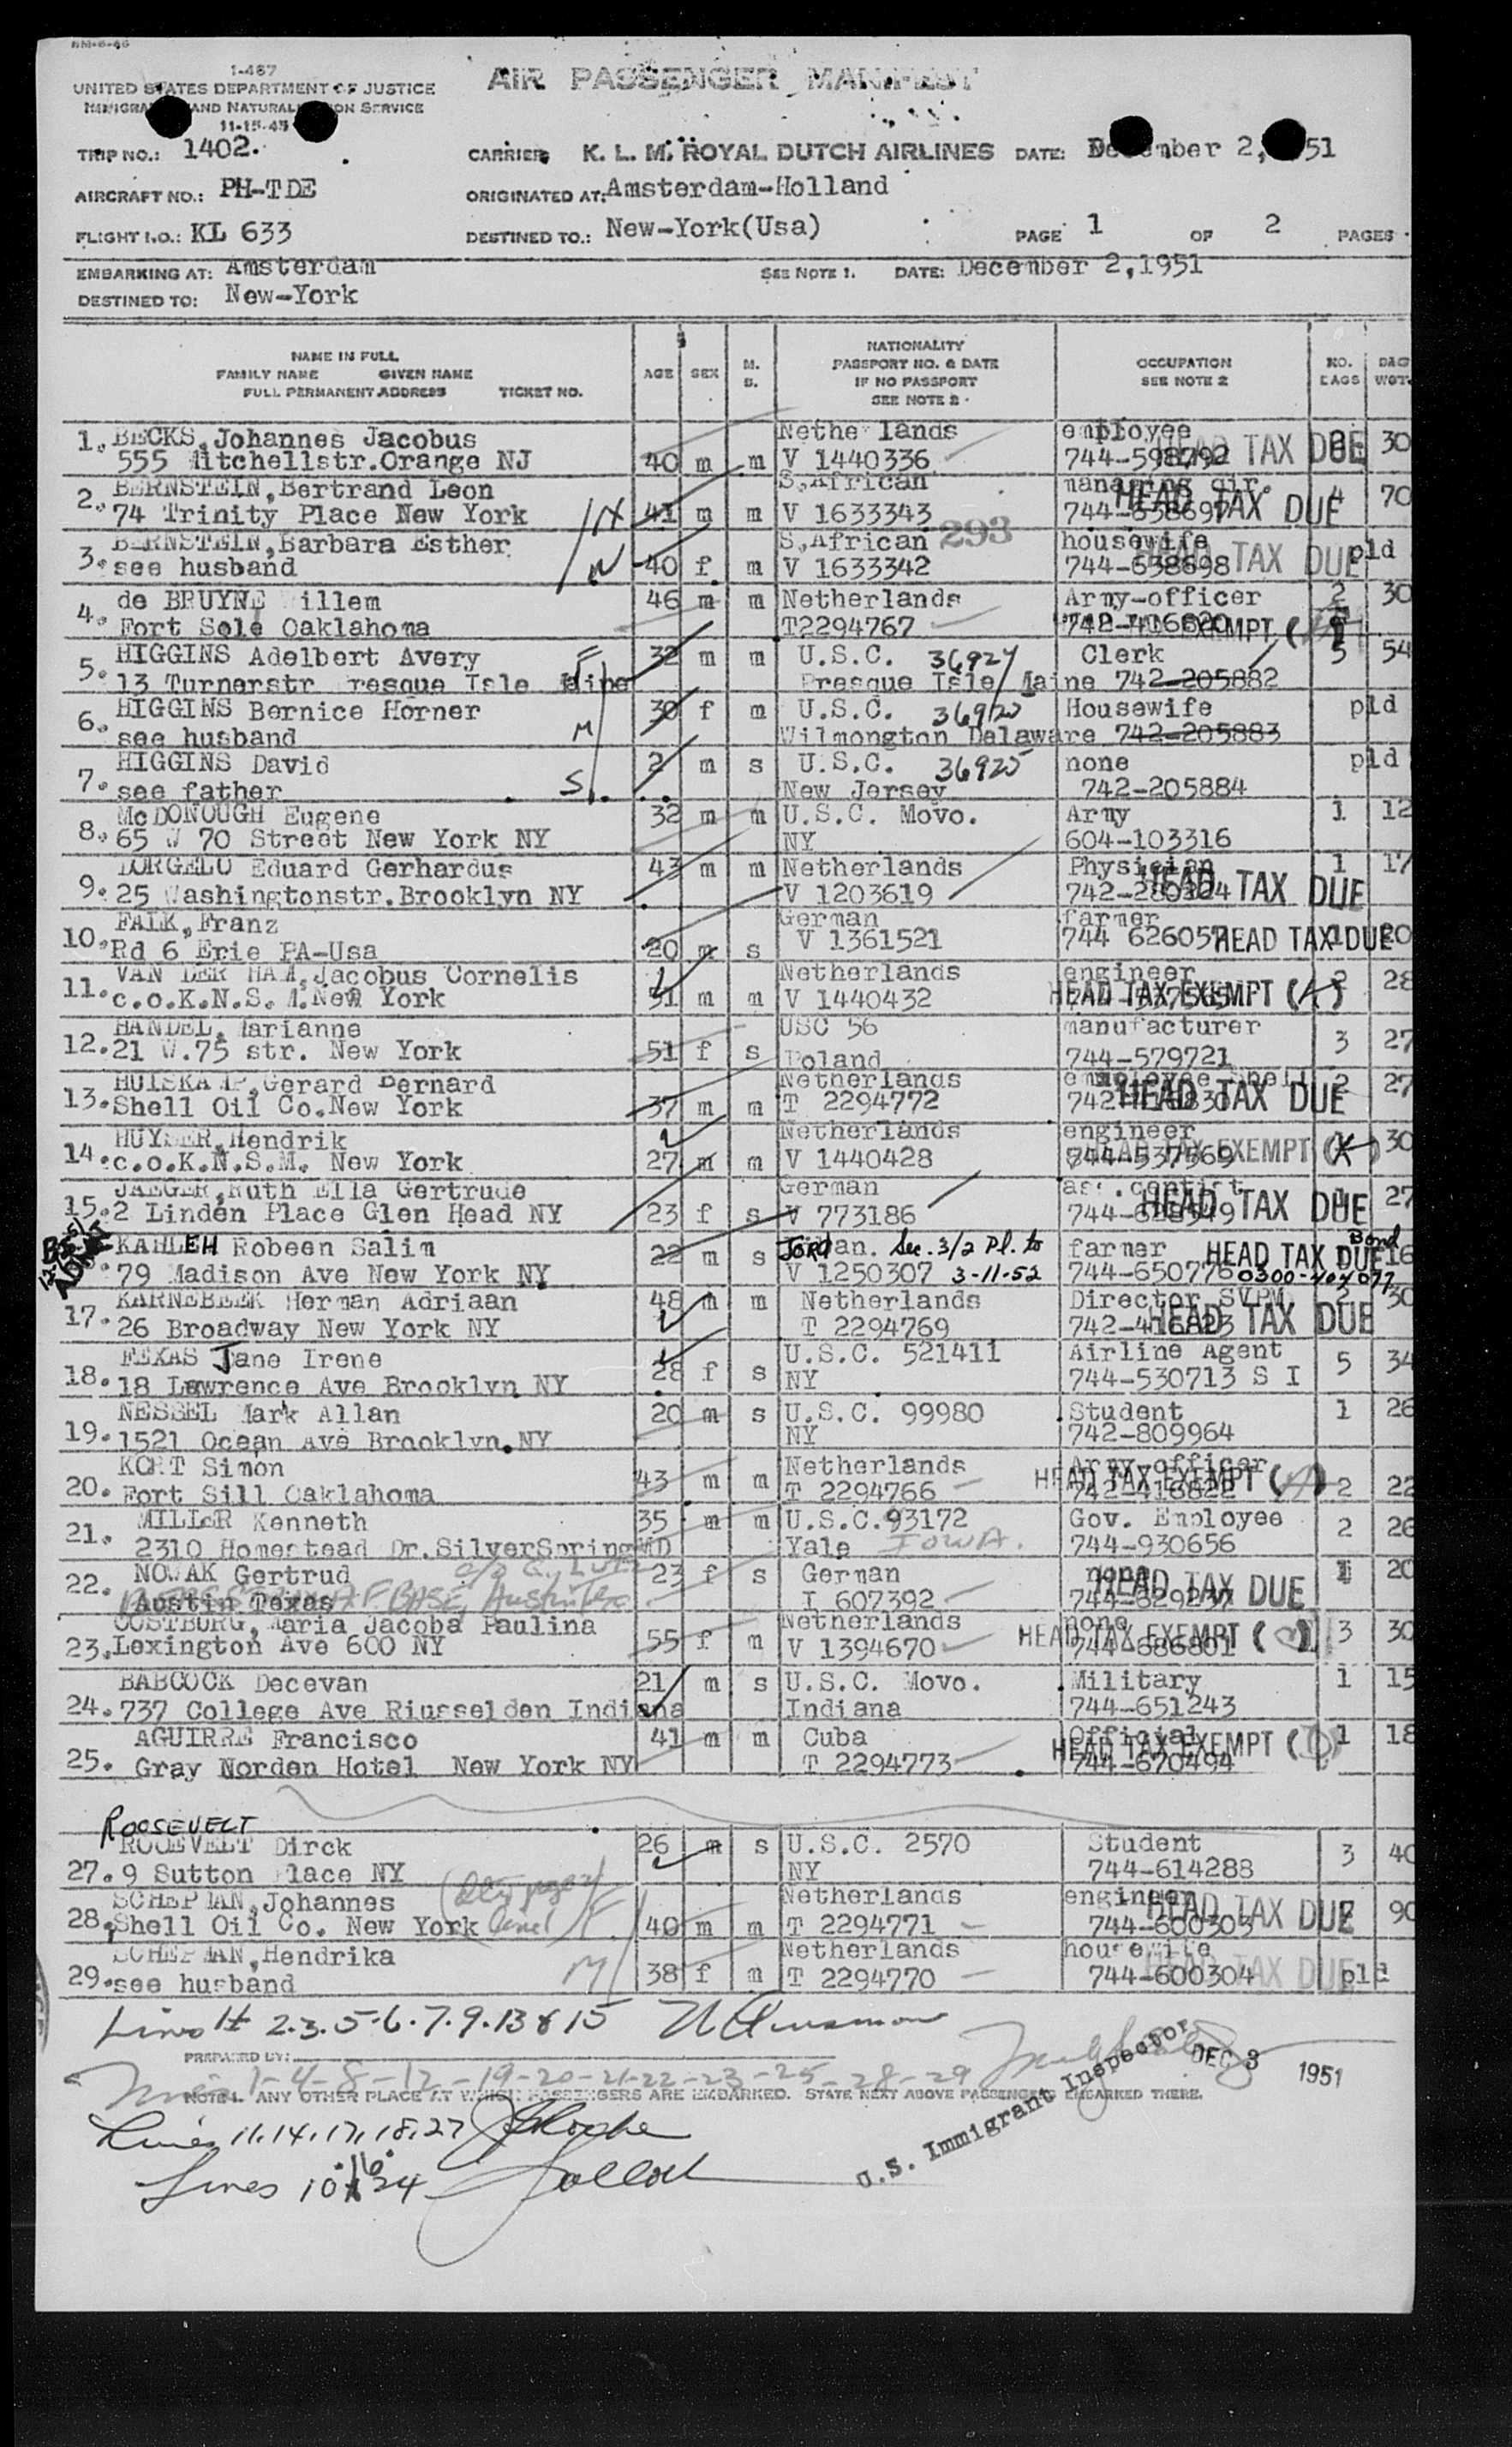 1-467
UNITED STATES DEPARTMENT OF JUSTICE
AIR PASSENGER MANIFEST
11-15-45
TRIP NO.: 1402.
CARRIER: K. L. M. ROYAL DUTCH AIRLINES DATE: December 2, 51
AIRCRAFT NO.: PH-TDE
ORIGINATED AT: Amsterdam-Holland
FLIGHT NO.: KL 633
DESTINED TO.: New-York(Usa) PAGE 1 OF 2 PAGES
EMBARKING AT: Amsterdam SEE NOTE 1. DATE: December 2,1951
DESTINED TO: New-York
NAME IN FULL
FAMILY NAME GIVEN NAME
FULL PERMANENT ADDRESS TICKET NO.
AGE SEX M. S.
NATIONALITY
PASSPORT NO. & DATE
IF NO PASSPORT
SEE NOTE 2
OCCUPATION
SEE NOTE 2
NO. BAGS
BAG WGT.
1. BECKS, Johannes Jacobus Netherlands employee 30
555 Mitchellstr.Orange NJ 40 m m V 1440336 744-598792 HEAD TAX DUE
2. BERNSTEIN, Bertrand Leon S.African managing dir. 4 70
74 Trinity Place New York 41 m m V 1633343 744-638697 HEAD TAX DUE
3. BERNSTEIN, Barbara Esther S.African 293 housewife pld
see husband 40 f m V 1633342 744-638698 HEAD TAX DUE
4. de BRUYNE Willem 46 m m Netherlands Army-officer 2 30
Fort Sole Oaklahoma T2294767 EXEMPT
5. HIGGINS Adelbert Avery 32 m m U.S.C. 36924 Clerk 5 54
13 Turnerstr Presque Isle Maine Presque Isle Maine 742-205882
6. HIGGINS Bernice Horner 30 f m U.S.C. Housewife pld
see husband Wilmongton Delaware 742-205883
7. HIGGINS David 2 m s U.S.C. 36925 none pld
see father New Jersey 742-205884
8. McDONOUGH Eugene 32 m m U.S.C. Movo. Army 1 12
65 W 70 Street New York NY NY 604-103316
9. LORGELO Eduard Gerhardus 43 m m Netherlands Physician 1 17
25 Washingtonstr.Brooklyn NY V 1203619 HEAD TAX DUE
10. FALK, Franz German farmer
Rd 6 Erie PA-Usa 20 m s V 1361521 744 626057 HEAD TAX DUE
11. VAN DER HAM, Jacobus Cornelis Netherlands engineer 2 28
c.o.K.N.S.M.New York 31 m m V 1440432 HEAD TAX EXEMPT
12. HANDEL, Marianne USC 56 manufacturer 3 27
21 W.75 str. New York 51 f s Poland 744-579721
13. HUISKAMP, Gerard Bernard Netherlands employee Shell 2 27
Shell Oil Co.New York 37 m m T 2294772 HEAD TAX DUE
14. HUYSER, Hendrik Netherlands engineer 30
c.o.K.N.S.M. New York 27 m m V 1440428 744-537569 HEAD TAX EXEMPT
15. JAEGER, Ruth Ella Gertrude German 27
2 Linden Place Glen Head NY 23 f s V 773186 HEAD TAX DUE
KAHLEH Robeen Salim 22 m s Jordan. Sec. 3/2 Pl. to farmer HEAD TAX DUE Bond 16
79 Madison Ave New York NY V 1250307 3-11-52 744-650776 0300-404077
17. KARNEBEEK Herman Adriaan 48 m m Netherlands Director SVPM 30
26 Broadway New York NY T 2294769 HEAD TAX DUE
18. TEXAS Jane Irene 28 f s U.S.C. 521411 Airline Agent 5 34
18 Lawrence Ave Brooklyn NY NY 744-530713 S I
19. NESSEL Mark Allan 20 m s U.S.C. 99980 Student 1 26
1521 Ocean Ave Brooklyn.NY NY 742-809964
20. KORT Simon 43 m m Netherlands Army-officer 2 22
Fort Sill Oaklahoma T 2294766 742-416822 HEAD TAX EXEMPT
21. MILLER Kenneth 35 m m U.S.C.93172 Gov. Employee 2 26
2310 Homestead Dr.SilverSpring MD Yale IOWA. 744-930656
22. NOWAK Gertrud 23 f s German none 1 20
Austin Texas I 607392 744-629237 HEAD TAX DUE
23. OOSTBURG, Maria Jacoba Paulina Netherlands none 3 30
Lexington Ave 600 NY 55 f m V 1394670 744-686801 HEAD TAX EXEMPT
24. BABCOCK Decevan 21 m s U.S.C. Movo. Military 1 15
737 College Ave Riusselden Indiana Indiana 744-651243
25. AGUIRRE Francisco 41 m m Cuba Official 1 18
Gray Norden Hotel New York NY T 2294773 744-670494 HEAD TAX EXEMPT
ROOSEVELT
27. ROOEVELT Dirck 26 m s U.S.C. 2570 Student 3 40
9 Sutton Place NY NY 744-614288
28. SCHEPMAN, Johannes Netherlands engineer 90
Shell Oil Co. New York 40 m m T 2294771 744-600303 HEAD TAX DUE
29. SCHEPMAN, Hendrika Netherlands housewife
see husband 38 f m T 2294770 744-600304 HEAD TAX DUE pld
Lines # 2.3.5-6.7.9.13 & 15
PREPARED BY:
1-4-8-12-19-20-21-22-23-25-28-29
DEC 3 1951
NOTE 1. ANY OTHER PLACE AT WHICH PASSENGERS ARE EMBARKED. STATE NEXT ABOVE PASSENGERS EMBARKED THERE.
U.S. Immigrant Inspector
Lines 11.14.17.18.27
Lines 10 16 24